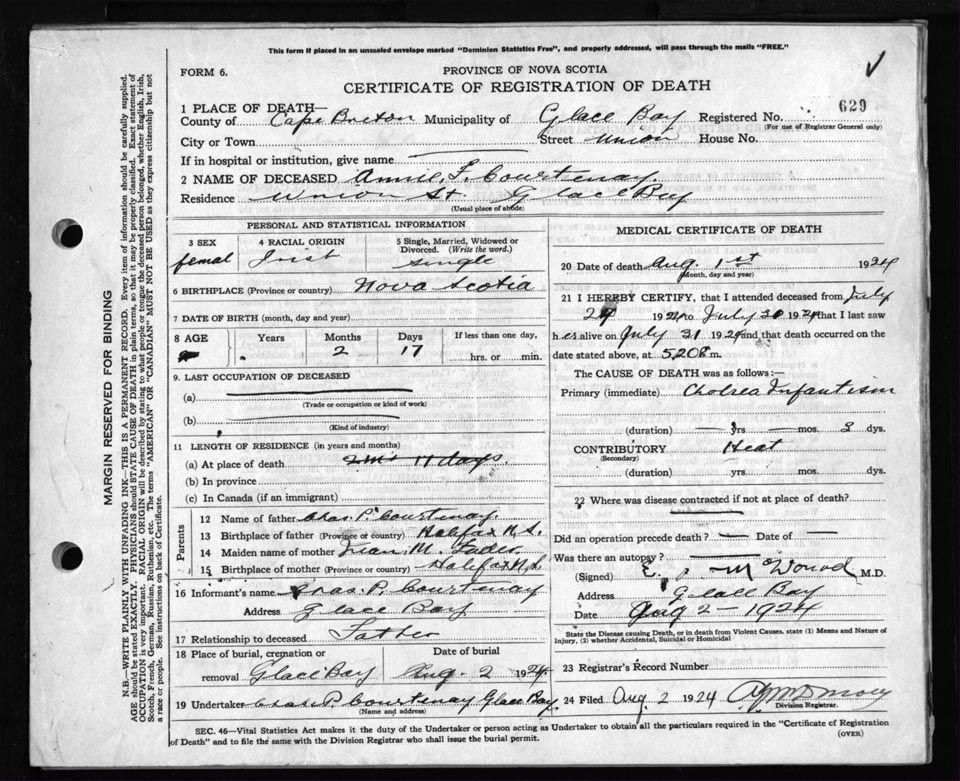 This form if placed in an unsealed envelope marked "Dominion Statistics Free", and properly addressed, will pass through the mails "FREE."
FORM 6.
PROVINCE OF NOVA SCOTIA
CERTIFICATE OF REGISTRATION OF DEATH
629
1 PLACE OF DEATH—
County of Cape Breton Municipality of Glace Bay Registered No.
(For use of Registrar General only)
City or Town Street Union House No.
If in hospital or institution, give name
2 NAME OF DECEASED Annie F. Courtenay
Residence Union St Glace Bay
(Usual place of abode)
PERSONAL AND STATISTICAL INFORMATION
3 SEX 4 RACIAL ORIGIN 5 Single, Married, Widowed or Divorced. (Write the word.)
femal Irish single
6 BIRTHPLACE (Province or country) Nova Scotia
7 DATE OF BIRTH (month, day and year)
8 AGE Years Months Days If less than one day,
2 17 hrs. or min.
9. LAST OCCUPATION OF DECEASED
(a)
(Trade or occupation or kind of work)
(b)
(Kind of industry)
11 LENGTH OF RESIDENCE (in years and months)
(a) At place of death 2 ms 17 days.
(b) In province
(c) In Canada (if an immigrant)
Parents
12 Name of father Chas. P. Courtenay.
13 Birthplace of father (Province or country) Halifax N.S.
14 Maiden name of mother M. Fader
15 Birthplace of mother (Province or country) Halifax N.S.
16 Informant's name Chas. P. Courtenay
Address Glace Bay
17 Relationship to deceased Father
18 Place of burial, cremation or removal Glace Bay Date of burial Aug. 2 1924
19 Undertaker Chas. P. Courtenay Glace Bay
(Name and address)
MEDICAL CERTIFICATE OF DEATH
20 Date of death Aug. 1st 1924
(Month, day and year)
21 I HEREBY CERTIFY, that I attended deceased from July
29 1924 to July 30 1924 that I last saw
h es alive on July 31 1924 and that death occurred on
date stated above, at 5,20 m.
The CAUSE OF DEATH was as follows:—
Primary (immediate) Cholrea Infantism
(duration) yrs. mos. 3 dys.
CONTRIBUTORY Heat
(Secondary)
(duration) yrs. mos. dys.
22 Where was disease contracted if not at place of death?
Did an operation precede death? — Date of —
Was there an autopsy?
(Signed) E. M.D.
Address Glace Bay
Date Aug 2 - 1924
State the Disease causing Death, or in death from Violent Causes, state (1) Means and Nature of Injury, (2) whether Accidental, Suicidal or Homicidal
23 Registrar's Record Number
24 Filed Aug. 2 1924
Division Registrar.
SEC. 46—Vital Statistics Act makes it the duty of the Undertaker or person acting as Undertaker to obtain all the particulars required in the "Certificate of Registration of Death" and to file the same with the Division Registrar who shall issue the burial permit.
(OVER)
MARGIN RESERVED FOR BINDING
N.B.—WRITE PLAINLY WITH UNFADING INK—THIS IS A PERMANENT RECORD. Every item of information should be carefully supplied.
AGE should be stated EXACTLY. PHYSICIANS should STATE CAUSE OF DEATH in plain terms, so that it may be properly classified. Exact statement of
OCCUPATION is very important. RACIAL ORIGIN will be described by stating to what people or tongue the deceased person belonged, whether English, Irish,
Scotch, French, German, Russian, Ruthenian, etc. The terms "AMERICAN" or "CANADIAN" MUST NOT BE USED as they express citizenship but not
a race or people. See instructions on back of Certificate.